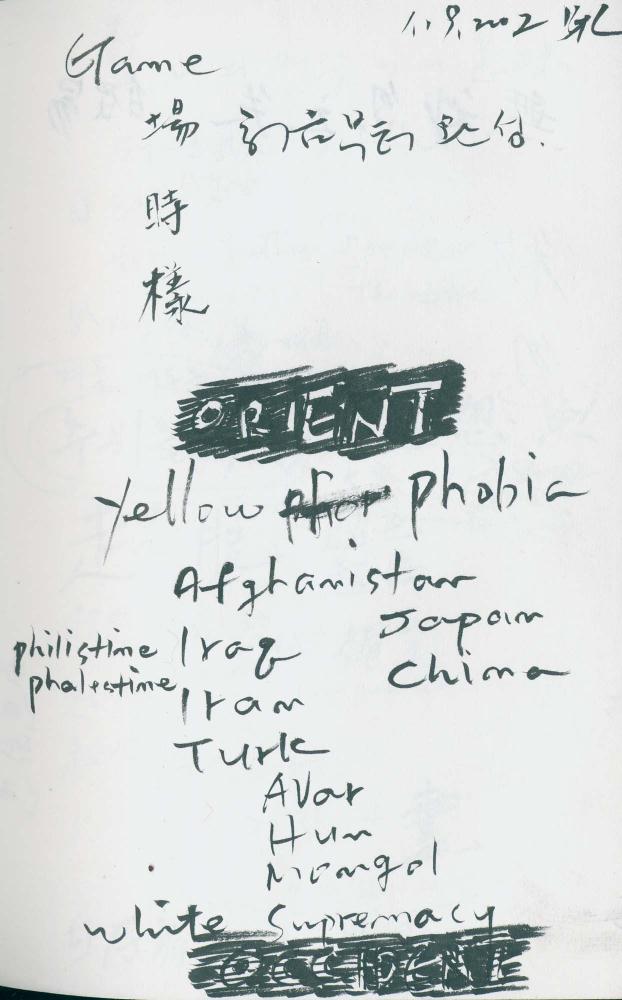 Game
場
時
樣
ORIENT
Yellow phobia
Afghanistan
Japan
philistine Iraq
China
phalestine
Iran
Turk
Avar
Hun
Mongol
white Supremacy
OCCIDENT